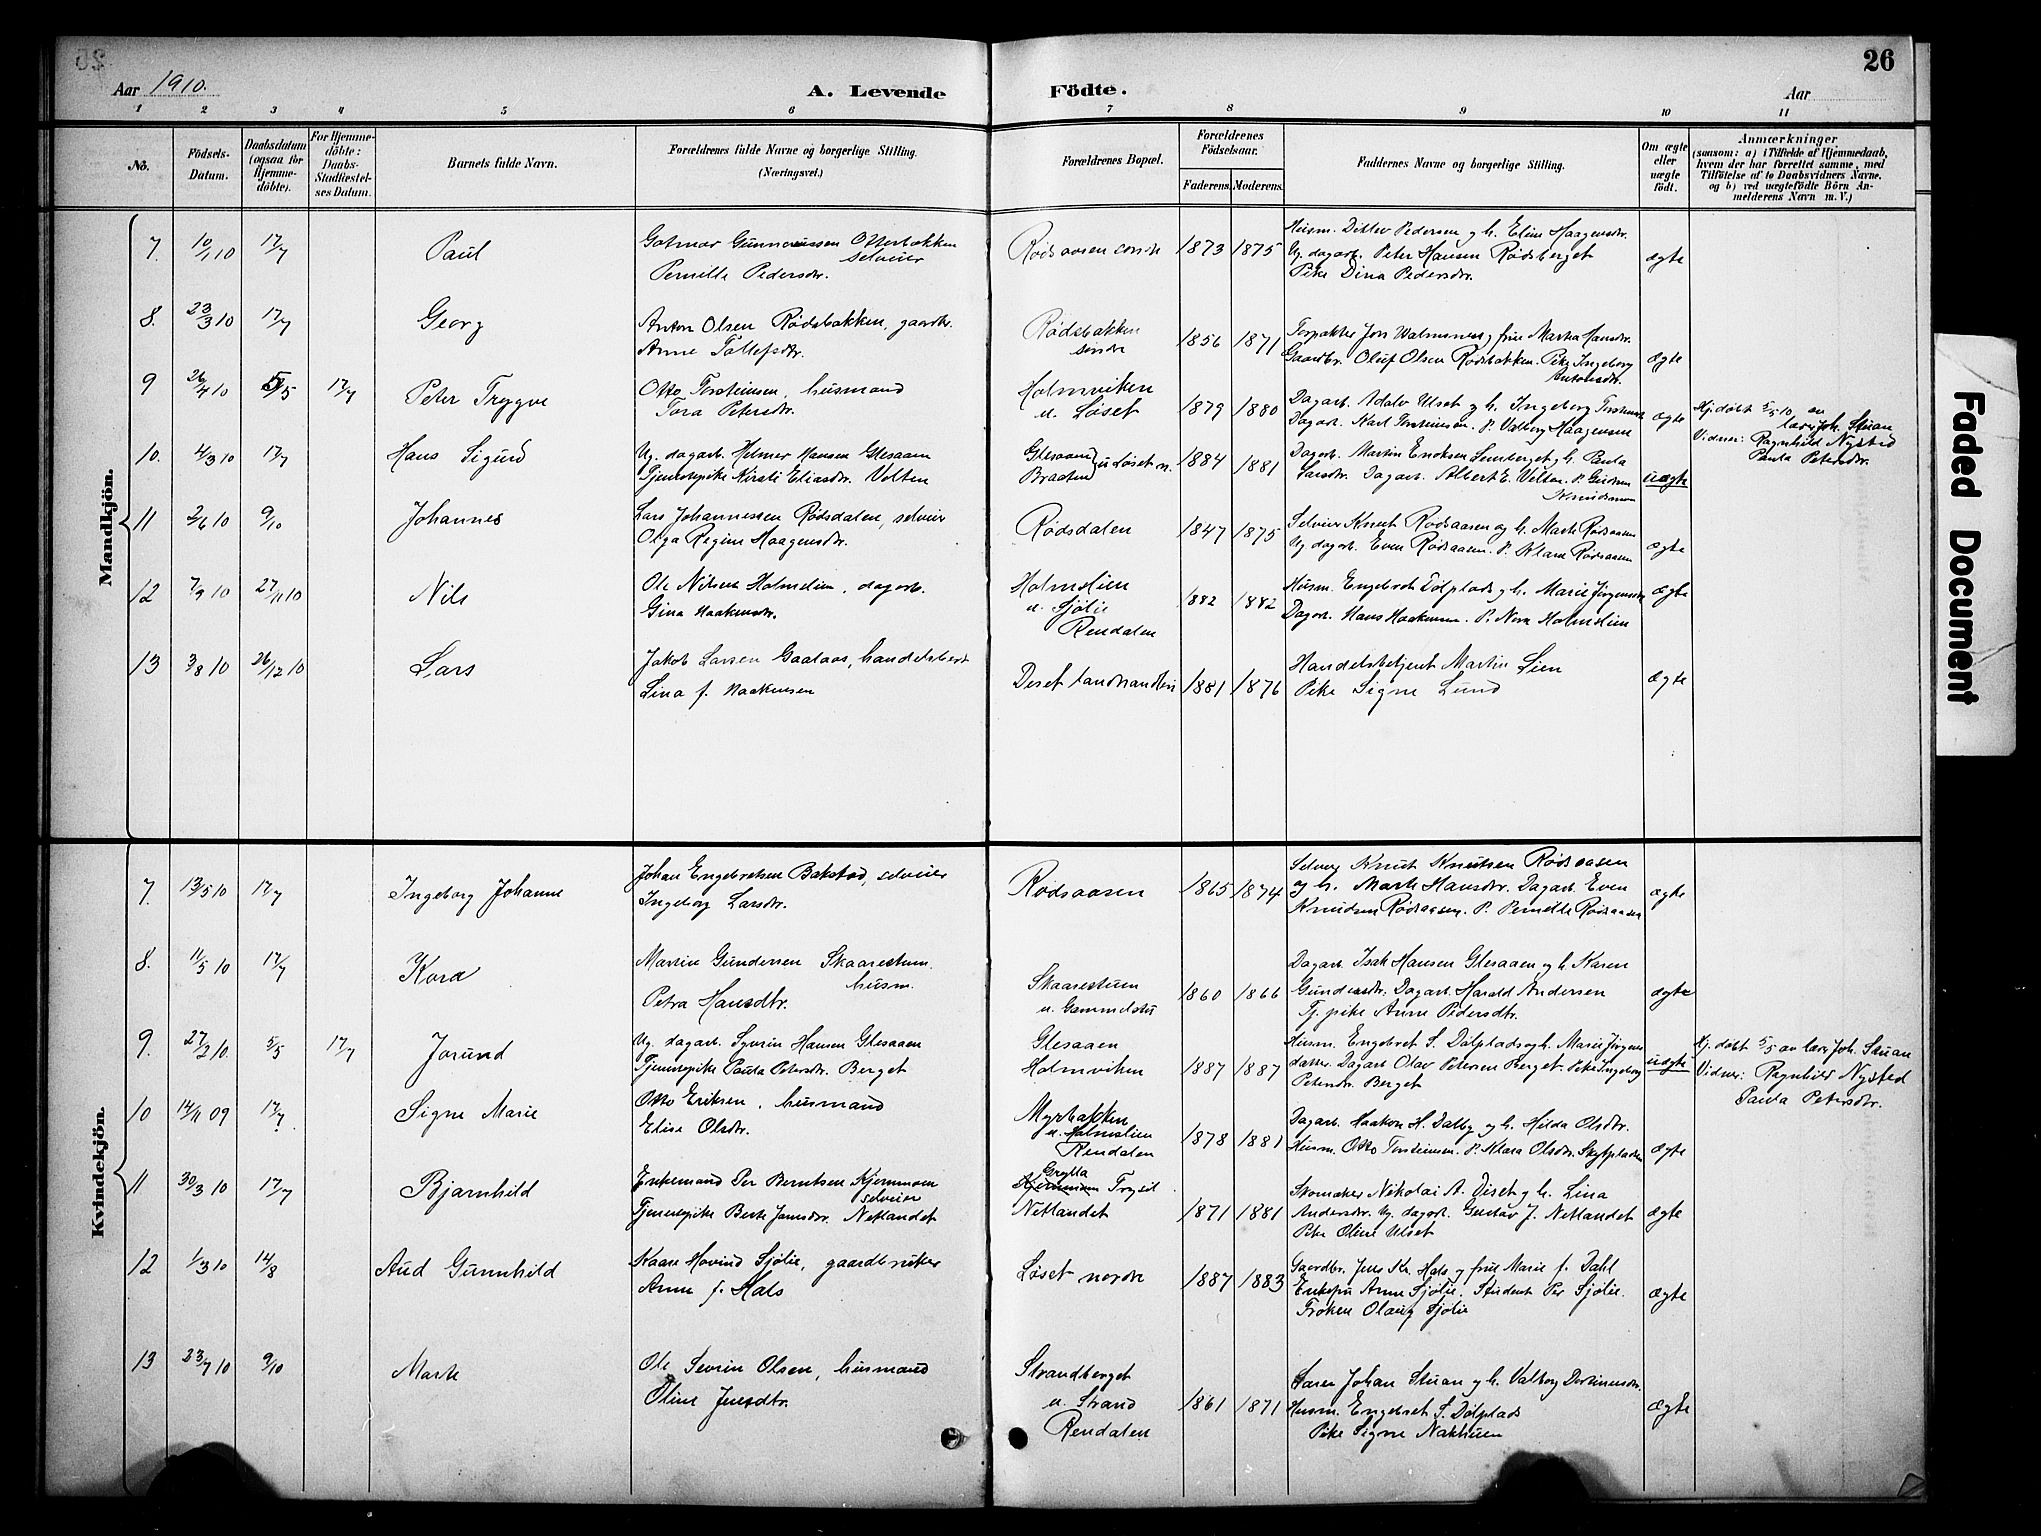 26
Aar 1910.
A. Levende
Födte.
Aar
1 2 3 4 5 6 7 8 9 10 11
No.
Födsels-Datum.
Daabsdatum (ogsaa for Hjemme-döbte).
For Hjemme-döbte: Daabs-Stadfæstel-ses Datum.
Barnets fulde Navn.
Forældrenes fulde Navne og borgerlige Stilling. (Næringsvei.)
Forældrenes Bopæl.
Forældrenes Födselsaar.
Faderens. Moderens.
Faddernes Navne og borgerlige Stilling.
Om ægte eller uægte födt.
Anmærkninger
(saasom: a) i Tilfælde af Hjemmedaab, hvem der har forrettet samme, med Tilföielse af to Daabsvidners Navne. og b) ved uægtefödte Börn An-melderens Navn m. V.)
Mandkjön.
7. 10/1 10 17/7 Paul
Gotmar Gunnerussen Otterbakken selveier
Pernelle Pedersdtr.
Rødsaasen søndr 1873 1875
Husm. Ditlev Pedersen og h. Eline Haagensdtr.
Ug. dagarb. Peter Hansen Rødsberget
Pike Dina Pedersdtr.
ægte
8. 23/3 10 17/7 Georg
Anton Olsen Rødsbakken, gaardbr.
Anne Tollefsdtr.
Rødsbakken søndr 1856 1871
Forpakter Jon Walmsnes og frue Martha Hansdtr.
Gaardbr. Oluf Olsen Rødsbakken. Pike Ingeborg
Antonsdtr.
ægte
9 26/4 10 5/5 17/7 Peter Trygve
Otto Torsteinsen, husmand
Tora Petersdtr.
Holmviken
u. Løset 1879 1880
Dagarb. Adolv Ulset og h. Ingeborg Torsteinsd.
Dagarb. Karl Torsteinsen. P. Valborg Haagensen
ægte
Hj. døbt 5/5 10 av
lærer Joh. Stuan
Vidner: Ragnhild Nysted
Paula Petersdtr.
10. 4/3 10 17/7 Hans Sigurd
Ug. dagarb. Helmer Hansen Glesaaen
Tjenestepike Kirsti Eliasdtr. Velten
Glesaaen
Braaten u Løset n. 1884 1881
Dagarb. Martin Eriksen Lemberget og h. Paula
Larsdtr. Dagarb. Albert E. Velten. P. Gudrun
Knudsen
uægte
11 2/6 10 9/10 Johannes
Lars Johannessen Rødsdalen, selveier
Olga Regine Haagensdtr.
Rødsdalen 1847 1875
Selveier Knut Rødsaasen og h. Marte Rødsaasen
Ug dagarb. Even Rødsaasen. P. Klara Rødsaasen
ægte
12 7/9 10 27/11 10 Nils
Ole Nilsen Holmelien, dagarb.
Gina Haakensdtr.
Holmelien
u. Sjølie
Rendalen 1882 1882
Husm. Engebret Dölplads og h. Marie Jörgensdtr
Dagarb. Hans Haakensen. P. Nora Holmelien
ægte
13 3/8 10 26/12 10 Lars
Jakob Larsen Gaalaas, handelsbest
Lina f. Haakensen
Deset landhandleri 1881 1876
Handelsbetjent Martin Lien
Pike Signe Lund
ægte
Kvindekjön.
7. 13/5 10 17/7 Ingeborg Johanne
Johan Engebretsen Bakstad, selveier
Ingeborg Larsdtr.
Rødsaasen 1865 1874
Selveier Knut Knutsen Rødsaasen
og h. Marte Hansdtr. Dagarb. Even
Knudsen Rødsaasen. P. Pernelle Rødsaasen
ægte
8. 11/5 10 17/7 Kora
Martin Gundersen Skaarestuen.
husm.
Petra Hansdtr.
Skaarestuen
u. Gammelstu 1860 1866
Dagarb. Isak Hansen Glesaaen og h. Karen
Gundersdtr. Dagarb. Harald Andersen
Tj. pike Anne Pedersdtr.
ægte
9. 27/2 10. 5/5 17/7 Jorund
Ug. dagarb. Syvrin Hansen Glesaaen
Tjenestepike Paula Petersdtr. Berget
Glesaaen
Holmviken 1887 1887
Husm. Engebret S. Dolplads og h. Marie Jörgens
datter. Dagarb Olav Petersen Berget. Pike Ingeborg
Petersdtr. Berget
uægte
Hj. døbt 5/5 av lærer Joh. Stuan
Vidner: Ragnhild Nysted
Paula Petersdtr.
10 14/11 09 17/7 Signe Marie
Otto Eriksen, husmand
Elise Olsdtr.
Myrbakken
u. Holmelien
Rendalen 1878 1881
Dagarb. Haakon H. Dalby og h. Hilda Olsdtr.
Husm. Otto Torsteinsen. P. Klara Olsdtr. Skytpladsen
ægte
11 30/3 10 17/7 Bjarnhild
Enkemand Per Berntsen Kjernmoen
selveier
Tjenestepike Berte Jonsdtr. Netlandet
Grylla
Kjernmoen Trysil.
Netlandet 1871 1881
Skomaker Nikolai A. Diset og h. Lina
Andersdtr. Ug. dagarb. Gustav J. Netlandet
Pike Oline Ulset
ægte
12 1/3 10 14/8 Aud Gunnhild
Kaare Hovind Sjølie, gaardbruker
Anna f. Hals
Løset nordr 1887 1883
Gaardbr. Jens Kr. Hals og frue Marie f. Dahl
Enkefru Anne Sjølie. Student Per Sjølie.
Frøken Olaug Sjølie
ægte
13 23/7 10 9/10 Marte
Ole Sevrin Olsen, husmand
Oline Jensdtr.
Strandberget
u. Strand
Rendalen 1861 1871
Lærer Johan Stuan og h. Valborg
Husm. Engebret S. Dölplads
Pike Signe Nakhuen
ægte
Faded Document